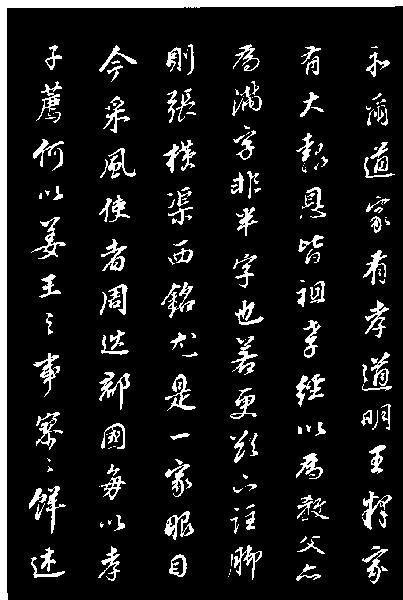 和爾道家有孝道明王釋家
有大報恩皆祖孝經以為教父亦
為滿字非半字也若更欲下註脚
則張橫渠西銘尤是一家眼目
今采風使者周巡郡國每以孝
子薦何以姜王之事寥〻鮮述